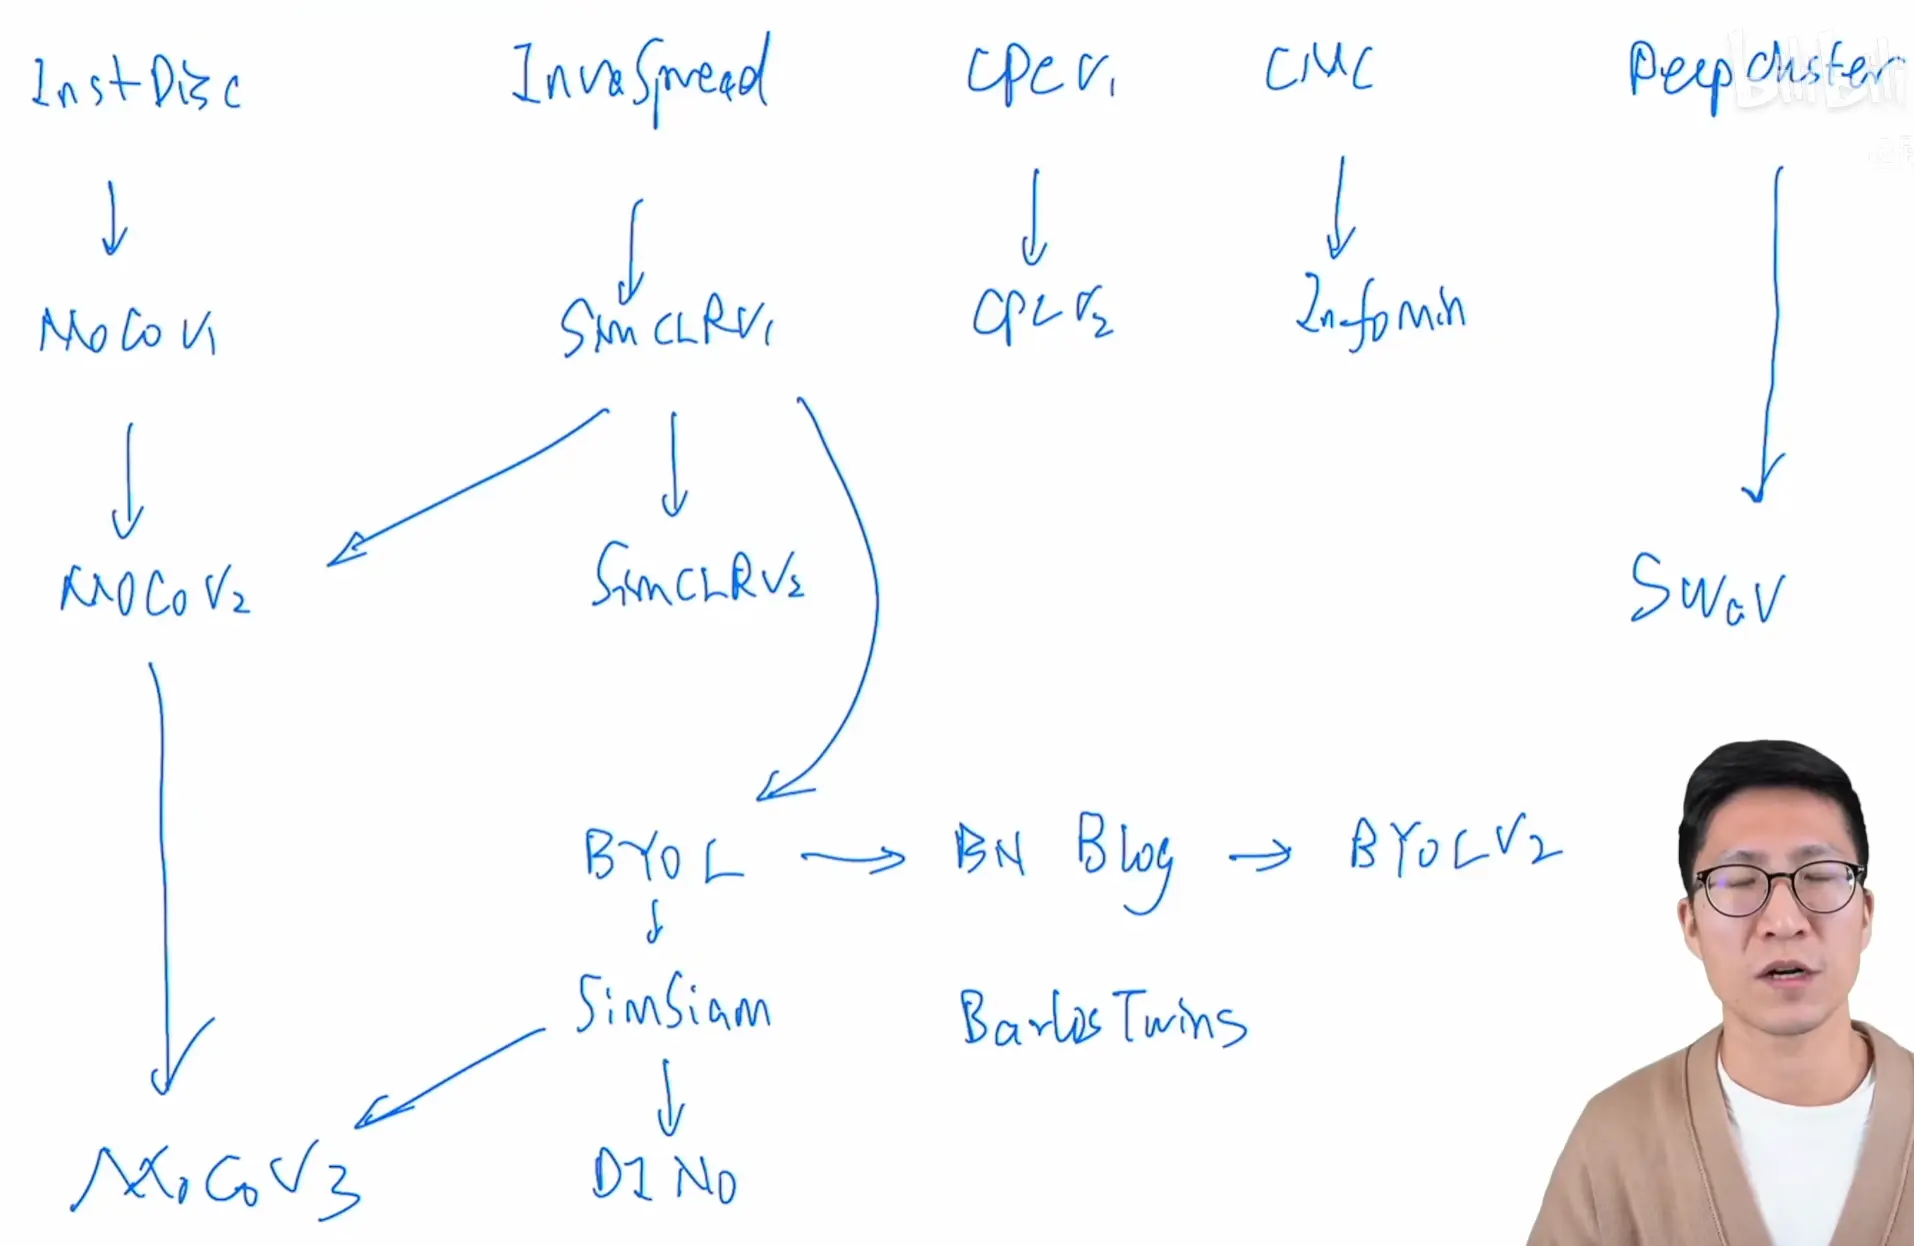 InstDisc InvaSpread CPC V1 CMC Deepcluster
bilibili
MoCo V1 SimCLR V1 CPC V2 Infomin
MOCO V2 SimCLR V2 SWaV
BYOL BN Blog BYOL V2
SimSiam BarlosTwins
MoCo V3 DINO